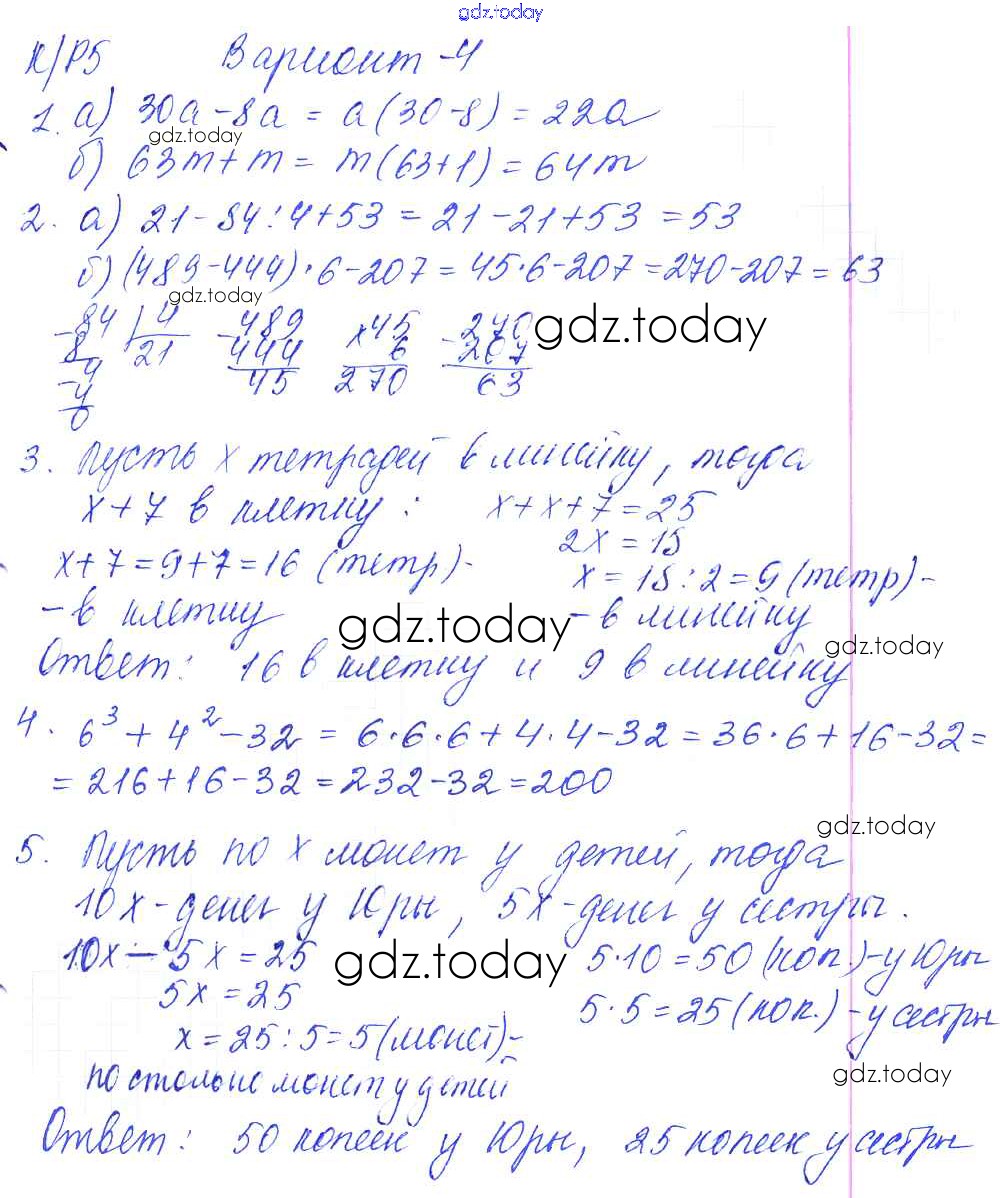 gdz.today
К/Р5 Вариант-4
1. а) 30a-8a = a(30-8) = 22a
gdz.today
б) 63m+m = m(63+1) = 64m
2. а) 21-84:4+53 = 21-21+53 = 53
б) (489-444)·6-207 = 45·6-207 = 270-207 = 63
gdz.today
-84 | 4 -489 ×45 -270 gdz.today
8 21 444 6 207
-4 45 270 63
4
0
3. Пусть x тетрадей в линейку, тогда
x+7 в клетку: x+x+7=25
2x=18
x+7=9+7=16 (тетр)- x=18:2=9 (тетр)-
-в клетку gdz.today -в линейку
gdz.today
Ответ: 16 в клетку и 9 в линейку
4. 6³+4²-32 = 6·6·6+4·4-32 = 36·6+16-32=
=216+16-32=232-32=200
gdz.today
5. Пусть по x монет у детей, тогда
10x-денег у Юры, 5x-денег у сестры.
10x-5x=25 gdz.today 5·10=50 (коп.)-у Юры
5x=25 5·5=25 (коп.)-у сестры
x=25:5=5 (монет)-
gdz.today
по столько монет у детей
Ответ: 50 копеек у Юры, 25 копеек у сестры